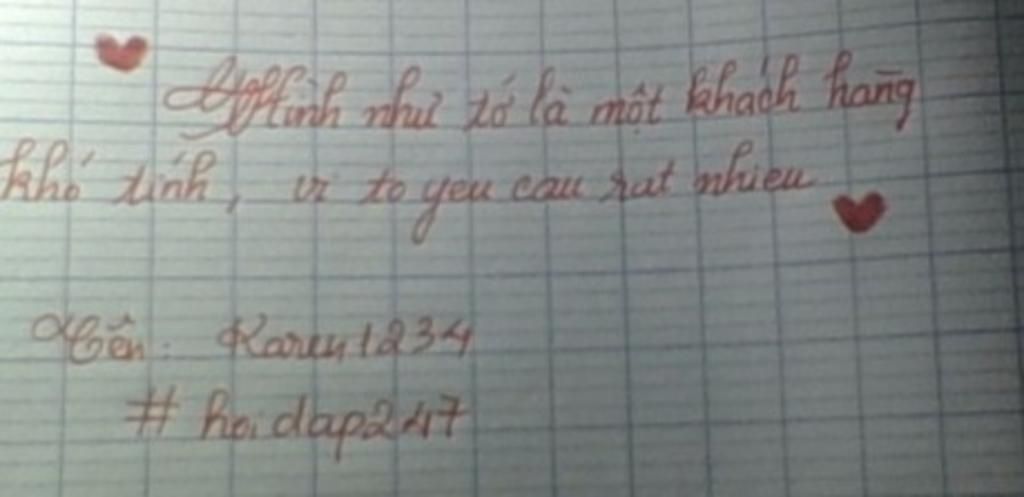 Hình như tớ là một khách hàng
khó tính, vì to yeu cau rat nhieu
Tên: Karry1234
# hoidap247